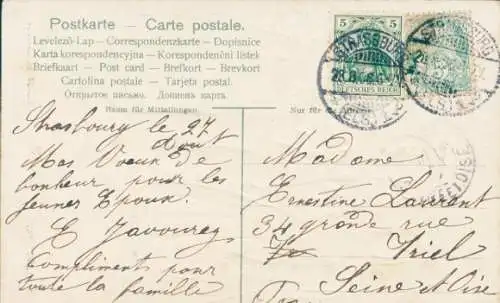 Postkarte — Carte postale.
Levelező-Lap — Correspondenzkarte — Dopisnice
Karta korespondencyjna — Korespondenční lístek
Briefkaart — Post card — Brefkort — Brevkort
Cartolina postale — Tarjeta postal.
Открытое письмо. Дописна карта.
Raum für Mittheilungen.
Nur für
5 5
DEUTSCHES REICH
STRASSBURG
STRASSBURG
Strasbourg le 27
Août
Mes Voeux de
bonheur pour les
jeunes Epoux.
E
Compliments pour
toute la famille
Madame
Ernestine Laurent
34 grande rue
Triel
Seine et Oise
ET OISE